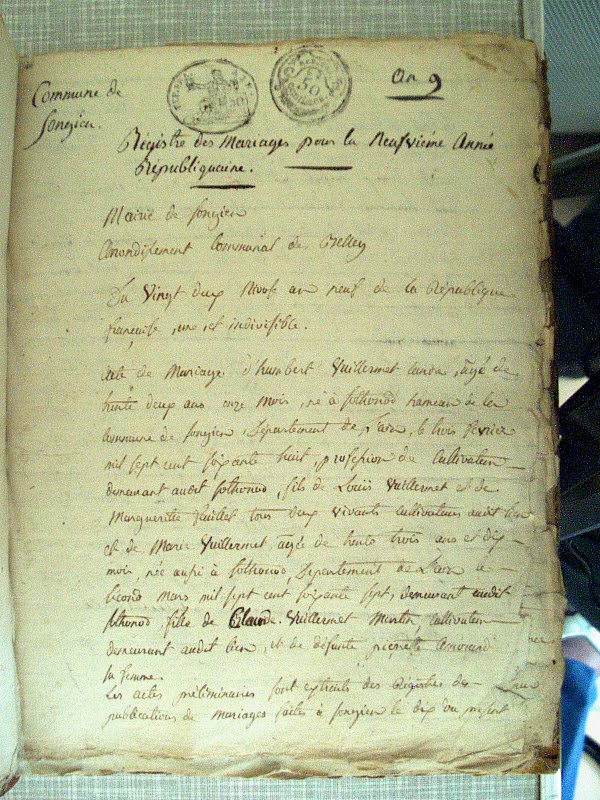 Commune de
Songieu.
An 9
Régistre des Mariages pour la Neufvième Année
Républiquaine.
Mairie de Songieu
Arrondissement Communal de Belley
Du Vingt deux Nivose an neuf de la République
française, une et indivisible.
Acte de Mariage d'humbert Vuillermet landoz, âgé de
trente deux ans onze mois, né à Sothonod hameau de la
Commune de Songieu, Département de l'ain, le trois février
mil sept cent soixante huit, profession de Cultivateur
demeurant audit Sothonod, fils de Louis Vuillermet et de
Marguerite tous deux vivants cultivateurs audit lieu
et de Marie Vuillermet, agée de trente trois ans et dix
mois, née aussi à Sothonod, Département de l'ain le
second Mars mil sept cent soixante sept, demeurant audit
Sothonod fille de Claude Vuillermet Martin, cultivateur
demeurant audit lieu, et de défunte pierrette
sa femme.
Les actes préliminaires sont extraits des Régistres des
publications de Mariages faites à Songieu le dix du présent